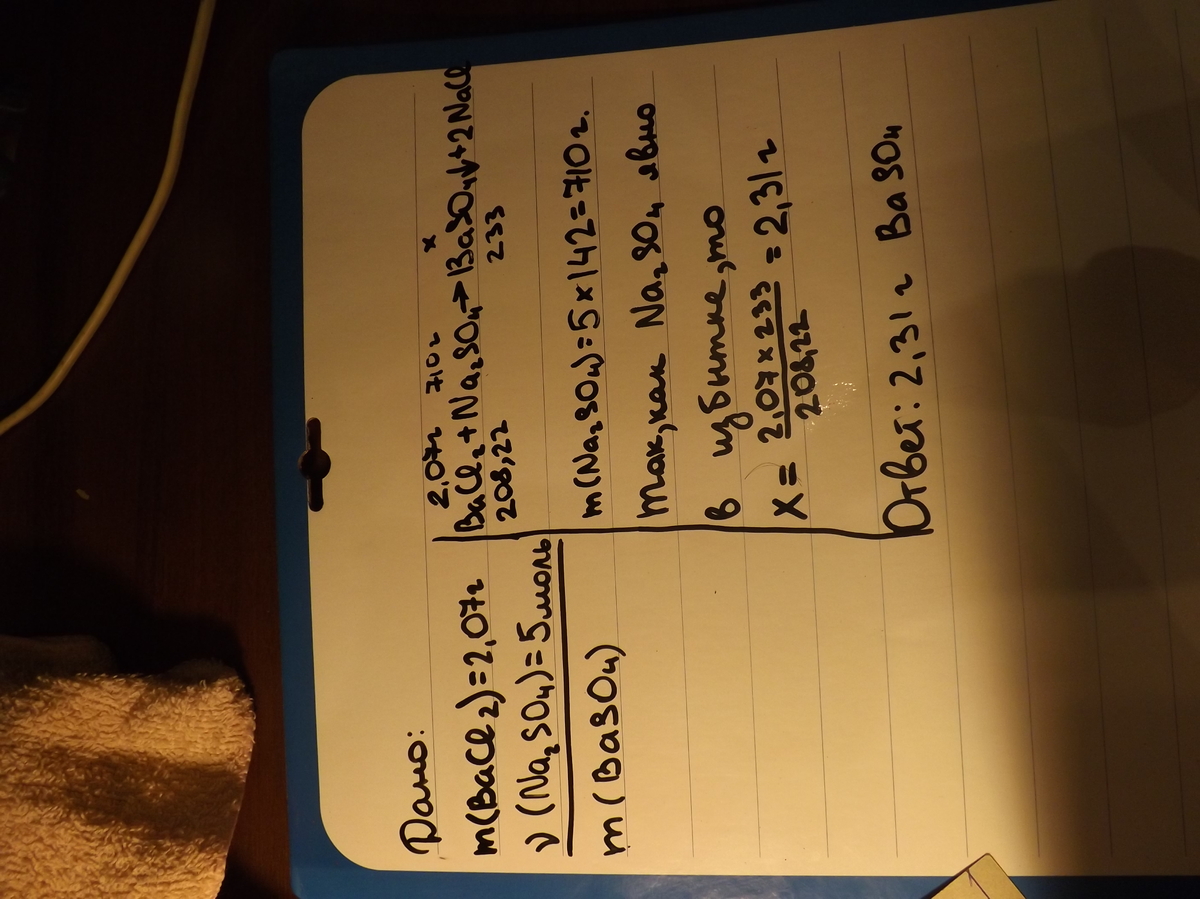 Дано:
m(BaCl2)=2,07г
ν(Na2SO4)=5моль
m(BaSO4)
2,07г 710г x
BaCl2+Na2SO4→BaSO4↓+2NaCl
208,22 233
m(Na2SO4)=5×142=710г.
так,как Na2SO4 явно
в избытке,то
X= 2,07×233 = 2,31г
208,22
Ответ: 2,31г BaSO4